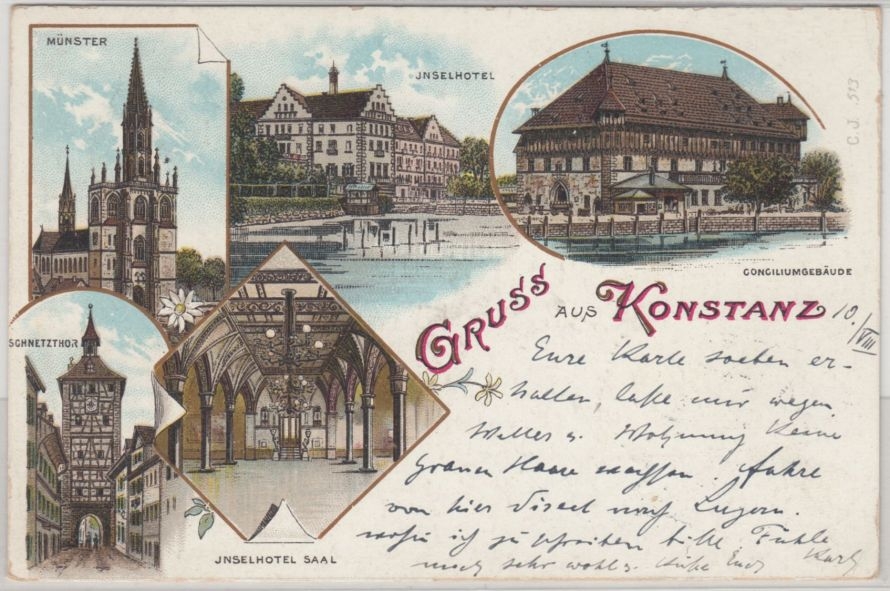 MÜNSTER
JNSELHOTEL
C.J. 513
CONCILIUMGEBÄUDE
SCHNETZTHOR
GRUSS AUS KONSTANZ
JNSELHOTEL SAAL
10./VIII
Eure Karte soeben er-
halten, laße mir wegen
Wetter u. Wohnung keine
grauen Haare wachsen. Fahre
von hier direct nach Luzern.
wohin ich zu schreiben bitte. Fühle
mich sehr wohl u. Küße Euch Karl